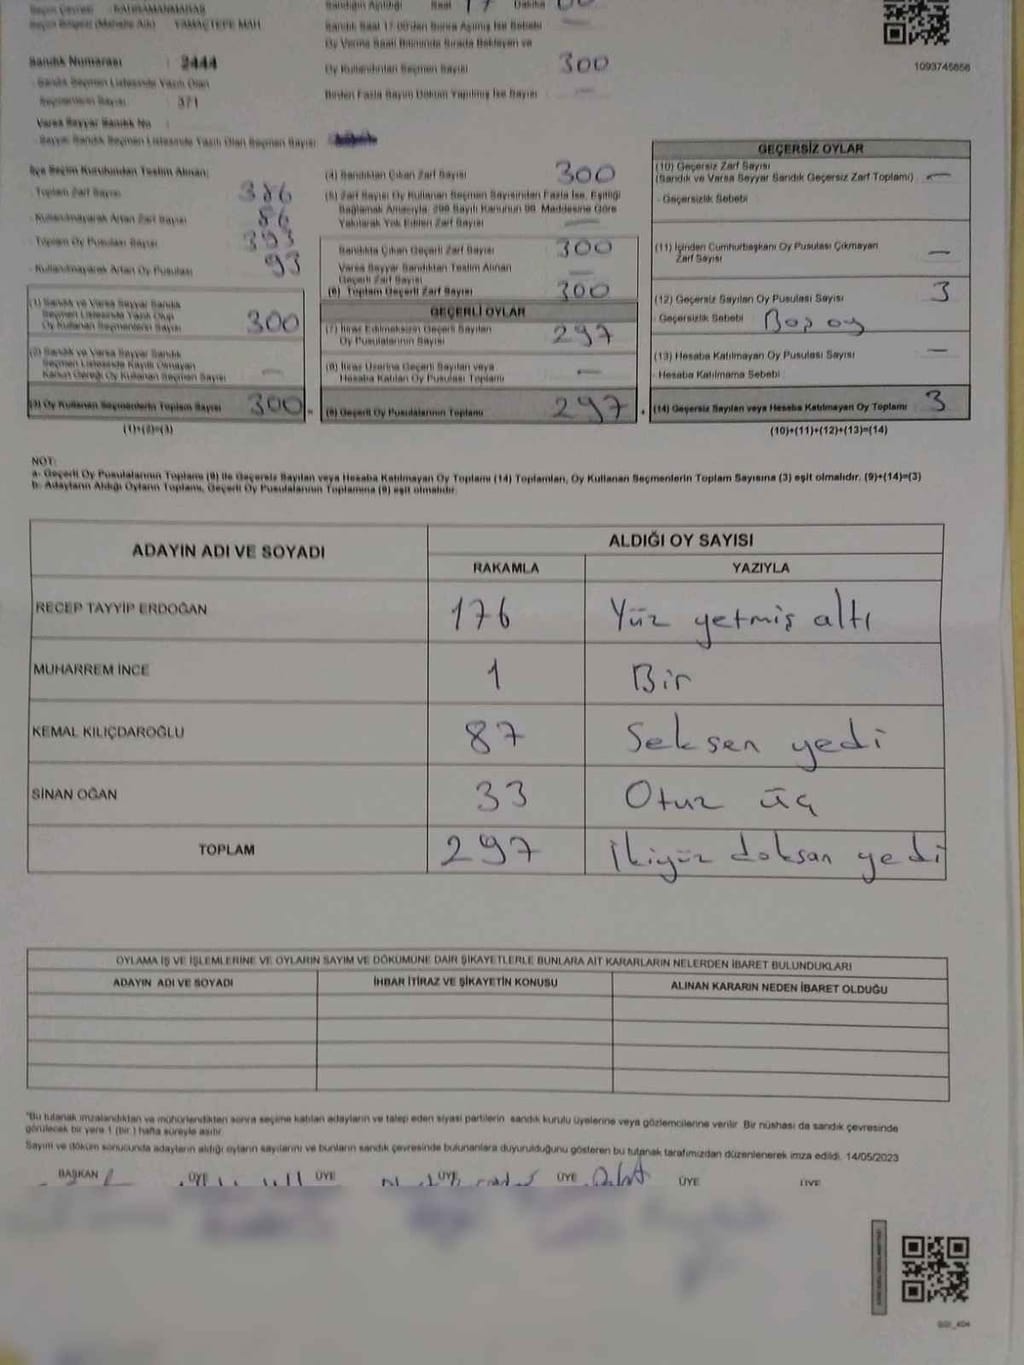 Seçim Çevresi : KAHRAMANMARAŞ
Seçim Bölgesi (Mahalle Adı) : YAMAÇTEPE MAH
Sandık Numarası : 2444
Sandık Seçmen Listesinde Yazılı Olan
Seçmenlerin Sayısı : 371
Varsa Seyyar Sandık No :
Seyyar Sandık Seçmen Listesinde Yazılı Olan Seçmen Sayısı
Sandığın Açıldığı Saat 17 Dakika 00
Sandık Saat 17:00'den Sonra Açılmış İse Sebebi —
Oy Verme Saati Bitiminde Sırada Bekleyen ve
Oy Kullandırılan Seçmen Sayısı 300
Birden Fazla Sayım Döküm Yapılmış İse Sayısı —
1093745656
İlçe Seçim Kurulundan Teslim Alınan;
Toplam Zarf Sayısı 386
Kullanılmayarak Artan Zarf Sayısı 86
Toplam Oy Pusulası Sayısı 393
Kullanılmayarak Artan Oy Pusulası 93
(1) Sandık ve Varsa Seyyar Sandık
Seçmen Listesinde Yazılı Olup
Oy Kullanan Seçmenlerin Sayısı 300
(2) Sandık ve Varsa Seyyar Sandık
Seçmen Listesinde Kayıtlı Olmayan
Kanun Gereği Oy Kullanan Seçmen Sayısı —
(3) Oy Kullanan Seçmenlerin Toplam Sayısı 300 =
(1)+(2)=(3)
(4) Sandıktan Çıkan Zarf Sayısı 300
(5) Zarf Sayısı Oy Kullanan Seçmen Sayısından Fazla İse, Eşitliği
Sağlamak Amacıyla, 298 Sayılı Kanunun 98. Maddesine Göre
Yakılarak Yok Edilen Zarf Sayısı —
Sandıkta Çıkan Geçerli Zarf Sayısı 300
Varsa Seyyar Sandıktan Teslim Alınan
Geçerli Zarf Sayısı —
(6) Toplam Geçerli Zarf Sayısı 300
GEÇERLİ OYLAR
(7) İtiraz Edilmeksizin Geçerli Sayılan
Oy Pusulalarının Sayısı 297
(8) İtiraz Üzerine Geçerli Sayılan veya
Hesaba Katılan Oy Pusulası Toplamı —
(9) Geçerli Oy Pusulalarının Toplamı 297 +
GEÇERSİZ OYLAR
(10) Geçersiz Zarf Sayısı
(Sandık ve Varsa Seyyar Sandık Geçersiz Zarf Toplamı) —
- Geçersizlik Sebebi
(11) İçinden Cumhurbaşkanı Oy Pusulası Çıkmayan
Zarf Sayısı —
(12) Geçersiz Sayılan Oy Pusulası Sayısı 3
- Geçersizlik Sebebi : Boş oy
(13) Hesaba Katılmayan Oy Pusulası Sayısı —
- Hesaba Katılmama Sebebi :
(14) Geçersiz Sayılan veya Hesaba Katılmayan Oy Toplamı 3
(10)+(11)+(12)+(13)=(14)
NOT:
a- Geçerli Oy Pusulalarının Toplamı (9) ile Geçersiz Sayılan veya Hesaba Katılmayan Oy Toplamı (14) Toplamları, Oy Kullanan Seçmenlerin Toplam Sayısına (3) eşit olmalıdır. (9)+(14)=(3)
b- Adayların Aldığı Oyların Toplamı, Geçerli Oy Pusulalarının Toplamına (9) eşit olmalıdır.
ADAYIN ADI VE SOYADI
ALDIĞI OY SAYISI
RAKAMLA YAZIYLA
RECEP TAYYİP ERDOĞAN 176 Yüz yetmiş altı
MUHARREM İNCE 1 Bir
KEMAL KILIÇDAROĞLU 87 Seksen yedi
SİNAN OĞAN 33 Otuz üç
TOPLAM 297 İkiyüz doksan yedi
OYLAMA İŞ VE İŞLEMLERİNE VE OYLARIN SAYIM VE DÖKÜMÜNE DAİR ŞİKAYETLERLE BUNLARA AİT KARARLARIN NELERDEN İBARET BULUNDUKLARI
ADAYIN ADI VE SOYADI İHBAR İTİRAZ VE ŞİKAYETİN KONUSU ALINAN KARARIN NEDEN İBARET OLDUĞU
*Bu tutanak imzalandıktan ve mühürlendikten sonra seçime katılan adayların ve talep eden siyasi partilerin sandık kurulu üyelerine veya gözlemcilerine verilir. Bir nüshası da sandık çevresinde
görülecek bir yere 1 (bir ) hafta süreyle asılır.
Sayım ve döküm sonucunda adayların aldığı oyların sayılarını ve bunların sandık çevresinde bulunanlara duyurulduğunu gösteren bu tutanak tarafımızdan düzenlenerek imza edildi. 14/05/2023
BAŞKAN ÜYE ÜYE ÜYE ÜYE ÜYE ÜYE